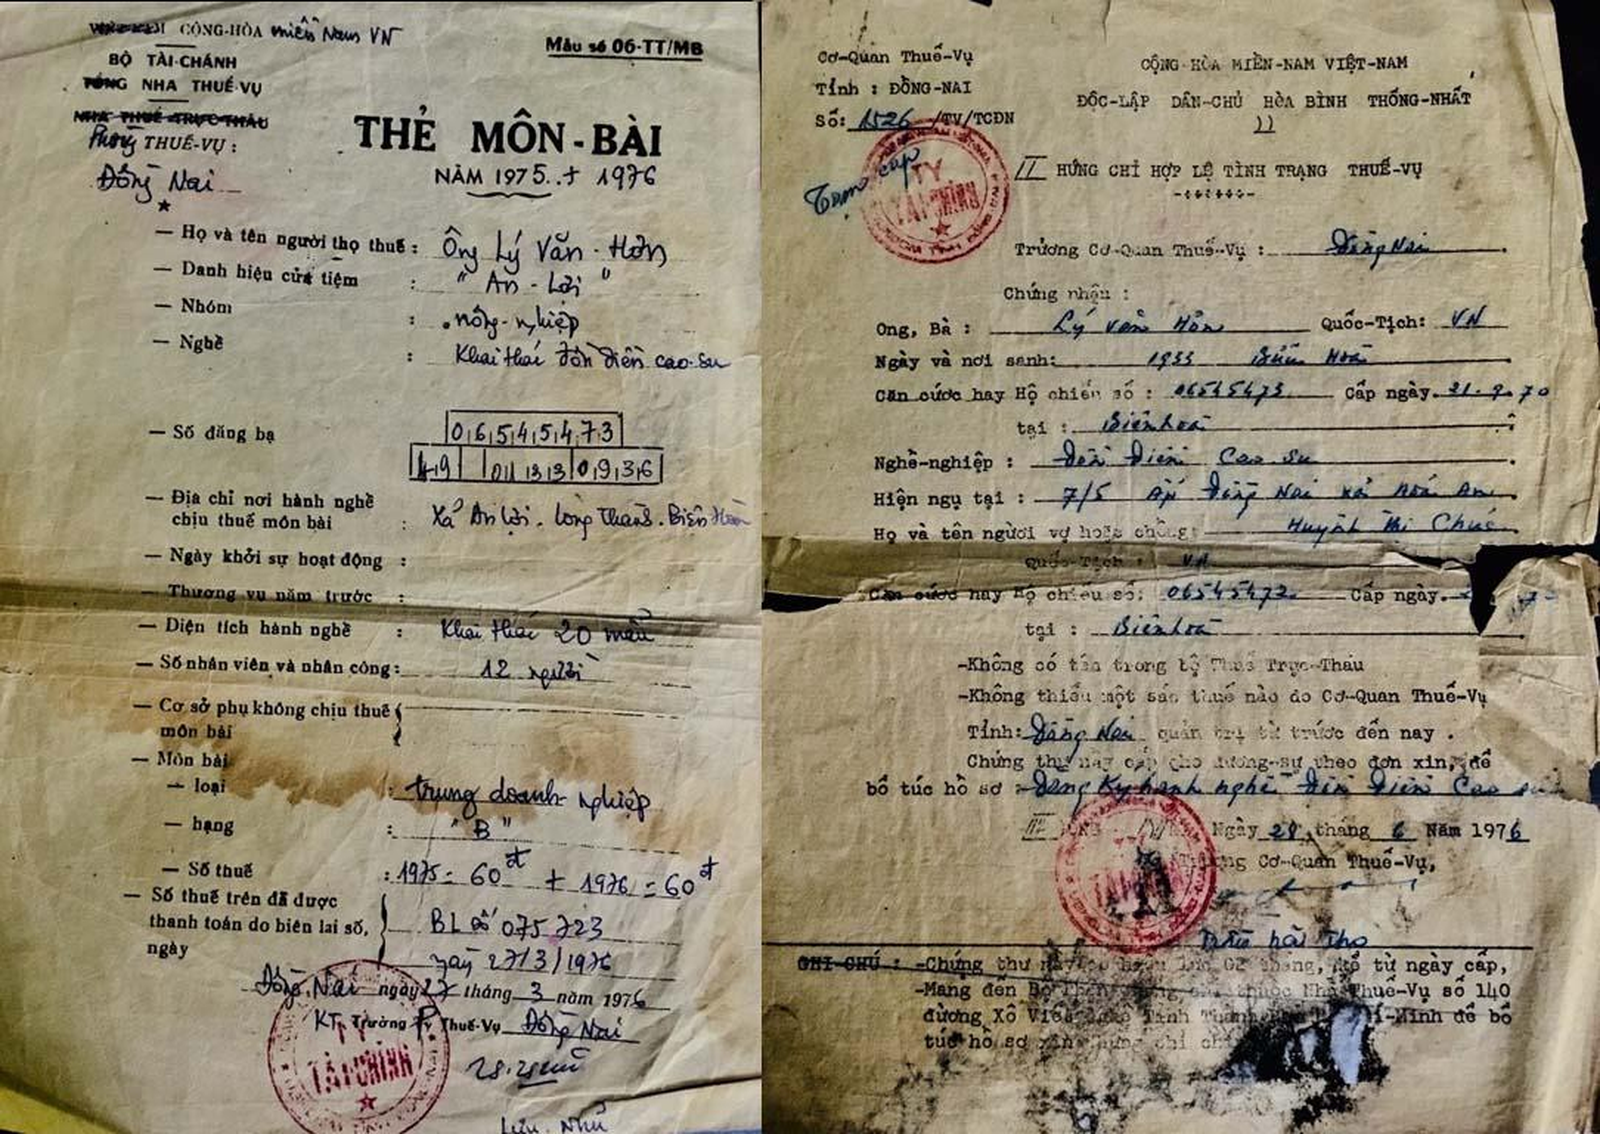 CỘNG-HÒA miền Nam VN
BỘ TÀI-CHÁNH
TỔNG NHA THUẾ-VỤ
NHA THUẾ TRỰC-THÂU
Phòng THUẾ-VỤ :
Đồng Nai
Mẫu số 06-TT/MB
THẺ MÔN-BÀI
NĂM 1975 + 1976
— Họ và tên người thọ thuế : Ông Lý Văn-Hớn
— Danh hiệu cửa tiệm : "An-Lợi"
— Nhóm : nông-nghiệp
— Nghề : Khai thác đồn điền cao-su
— Số đăng bạ 06545473
49 011313 0936
— Địa chỉ nơi hành nghề
chịu thuế môn bài : Xã An Lợi. Long Thành. Biên Hòa
— Ngày khởi sự hoạt động :
— Thương vụ năm trước :
— Diện tích hành nghề : Khai thác 20 mẫu
— Số nhân viên và nhân công : 12 người
— Cơ sở phụ không chịu thuế
môn bài
— Môn bài
— loại : trung doanh nghiệp
— hạng : "B"
— Số thuế : 1975 = 60đ + 1976 = 60đ
— Số thuế trên đã được
thanh toán do biên lai số, BL số 075723
ngày ngày 27/3/1976
Đồng Nai ngày 27 tháng 3 năm 1976
KT Trưởng Ty Thuế-Vụ Đồng Nai
TY
TÀI CHÍNH
Cơ-Quan Thuế-Vụ
Tỉnh : ĐỒNG-NAI
Số: 1526 /TV/TCĐN
Tạm cấp
TY
TÀI CHÍNH
CỘNG HÒA MIỀN-NAM VIỆT-NAM
ĐỘC-LẬP DÂN-CHỦ HÒA BÌNH THỐNG-NHẤT
HỨNG CHỈ HỢP LỆ TÌNH TRẠNG THUẾ-VỤ
Trưởng Cơ-Quan Thuế-Vụ : Đồng Nai
Chứng nhận :
Ong, Bà : Lý Văn Hớn Quốc-Tịch: VN
Ngày và nơi sanh: 1933 Biên Hoà
Căn cước hay Hộ chiếu số : 06545473 Cấp ngày 21-9-70
tại : Biên hoà
Nghề-nghiệp : Đồn Điền Cao Su
Hiện ngụ tại : 7/5 Ấp Đồng Nai xã Hoá An
Họ và tên người vợ hoặc chồng: Huỳnh Thị Chúc
Quốc-Tịch : VN
Căn cước hay Hộ chiếu số: 06545472 Cấp ngày
tại : Biên hoà
-Không có tên trong bộ Thuế Trực-Thâu
-Không thiếu một sắc thuế nào do Cơ-Quan Thuế-Vụ
Tỉnh: Đồng Nai quản trị từ trước đến nay .
Chứng thư này cấp cho đương-sự theo đơn xin, để
bổ túc hồ sơ : Đăng Ký hành nghề Đồn Điền Cao su
Ngày 28 tháng 6 Năm 1976
Trưởng Cơ-Quan Thuế-Vụ,
TÀI CHÍNH
GHI-CHÚ : -Chứng thư này có hiệu lực 02 tháng, kể từ ngày cấp,
-Mang đến Bộ thuộc Nha Thuế-Vụ số 140
đường Xô Viết Nghệ Tĩnh Thành Hồ Chí-Minh để bổ
túc hồ sơ xin Chứng chỉ